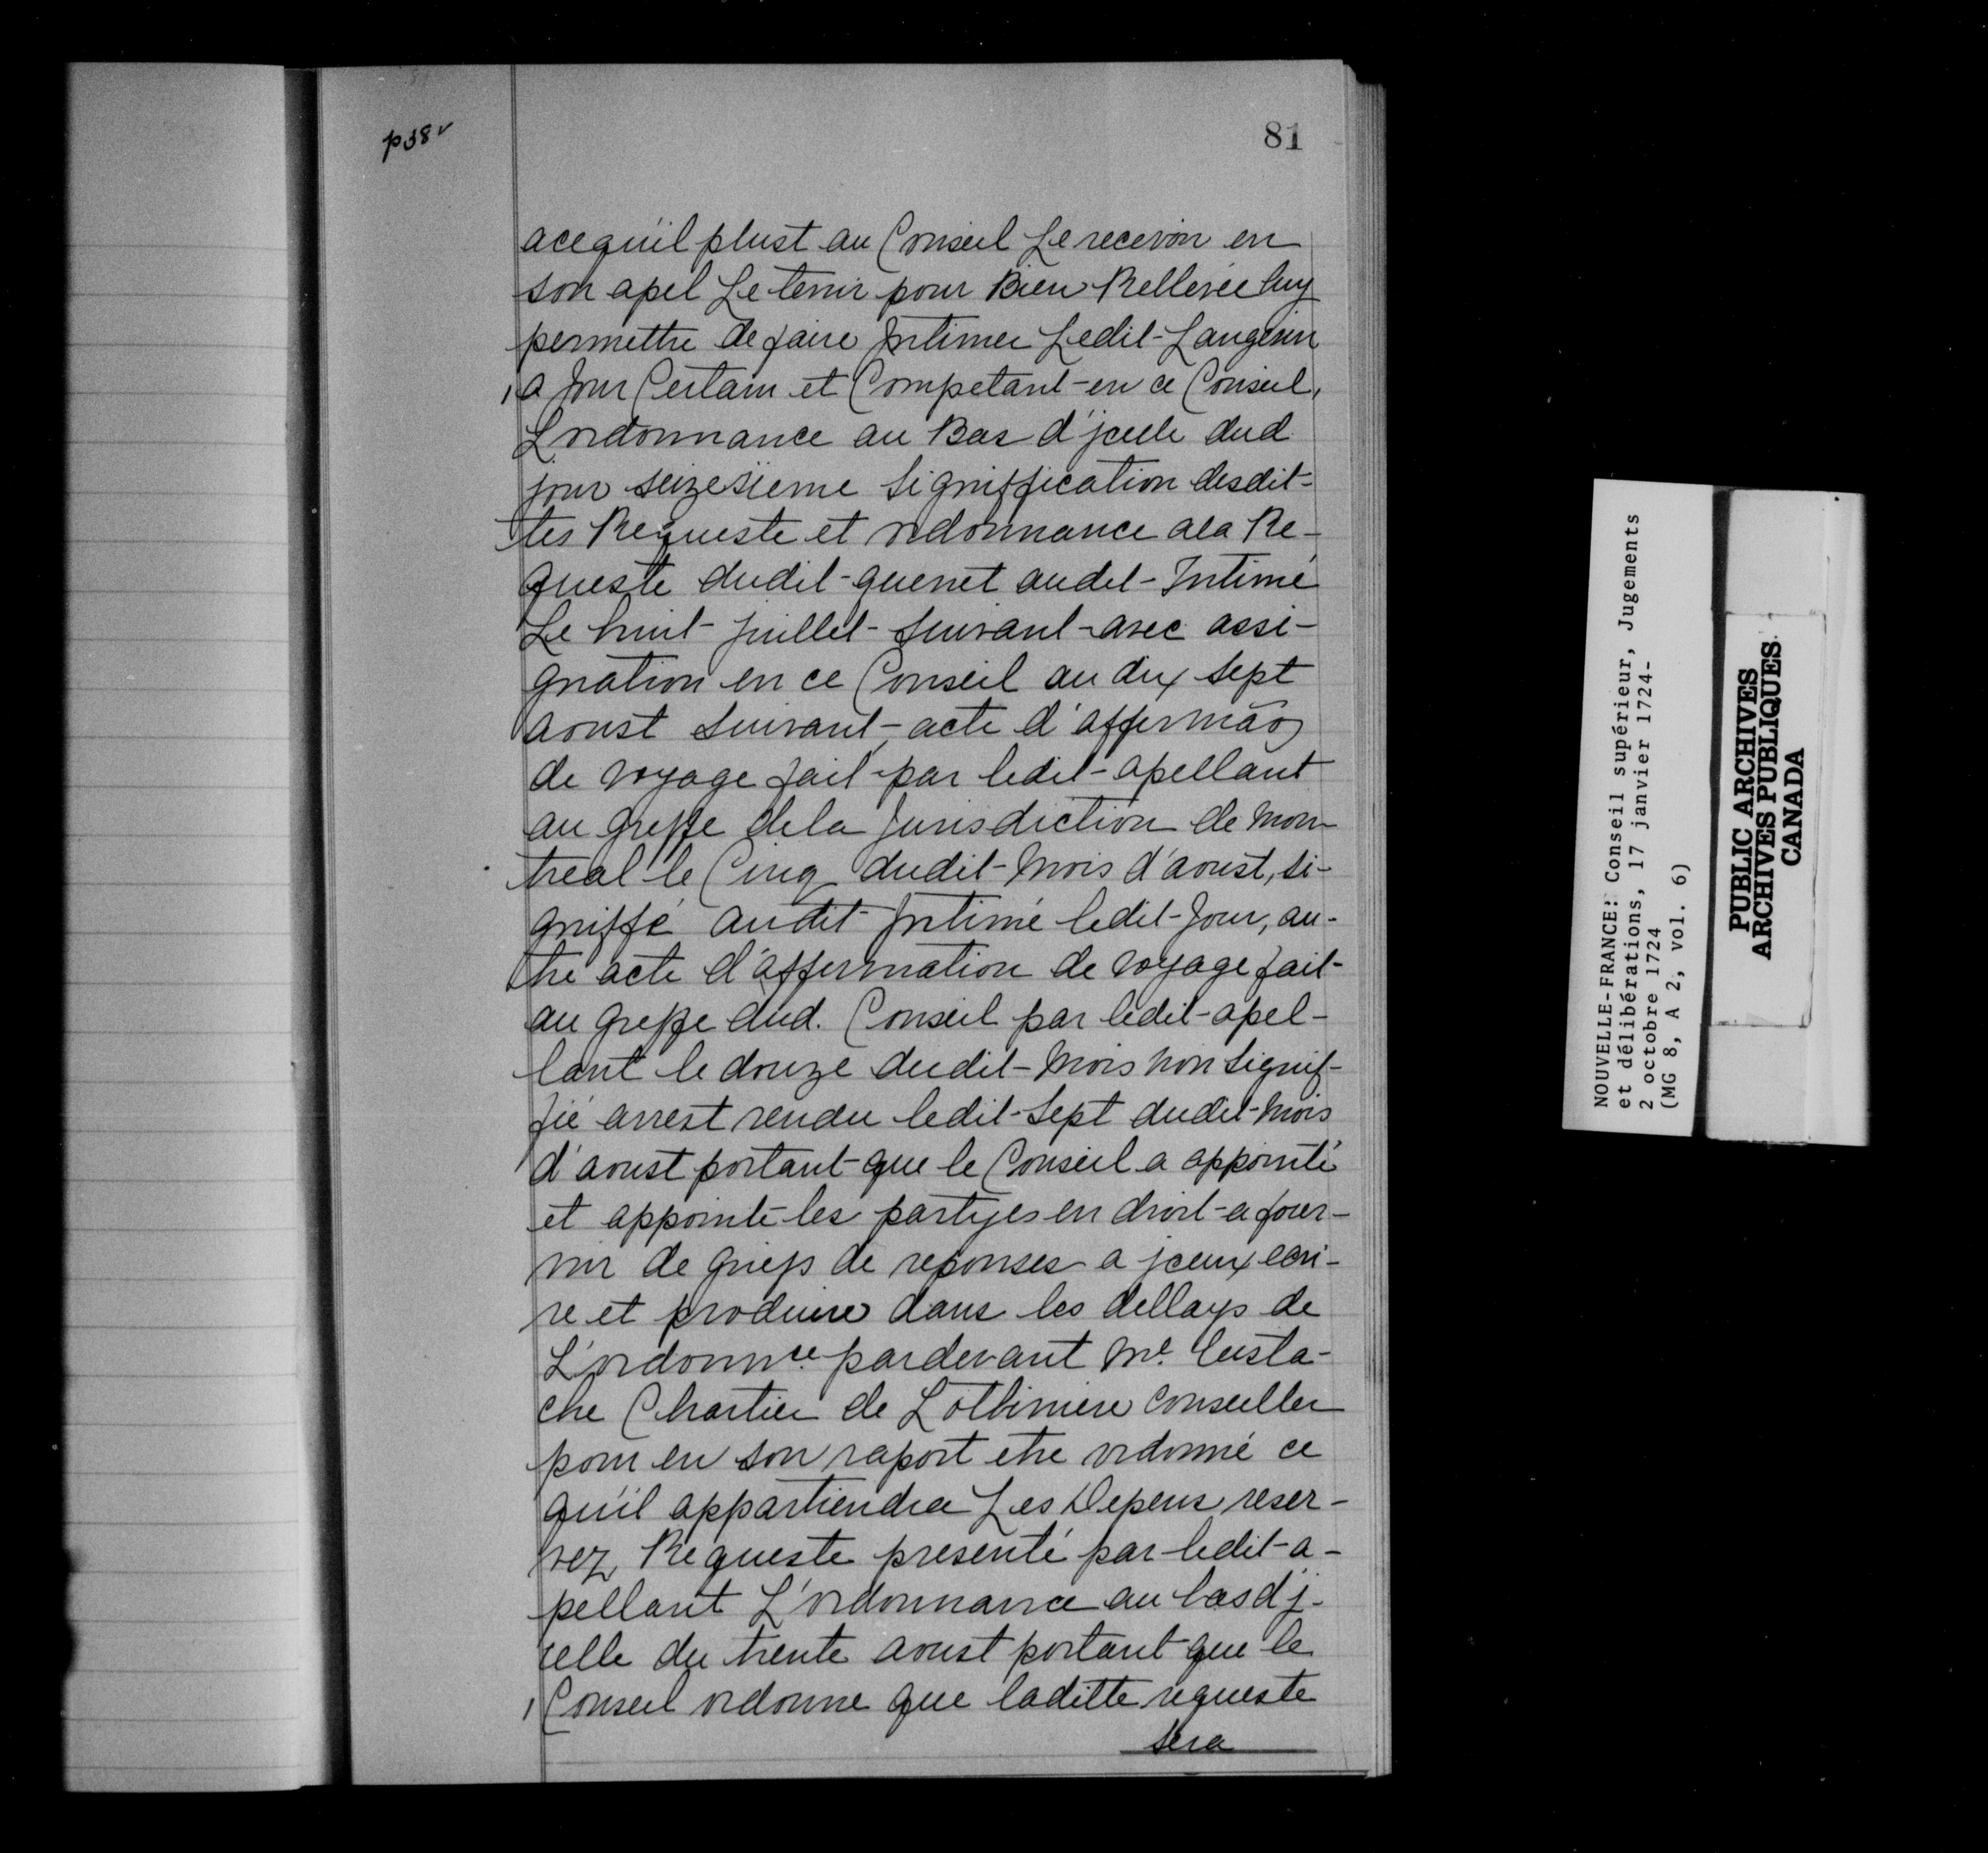 p38v
81
acequ'il plust au Conseil Le recevoir en
son apel Le tenir pour Bien Rellevée luy
permettre de faire Intimer Ledit Langevin
a Jour Certain et Competant en ce Conseil,
L'ordonnance au Bas d'jcelle dud
jour seizesieme Signiffication desdit-
tes Requeste et ordonnance ala Re-
queste dudit quenet audit Intimé
Le huit juillet suivant avec assi-
gnation en ce Conseil au dix sept
aoust suivant, acte d'affermão
de voyage fait par ledit apellant
au greffe dela Jurisdiction de mon-
treal le Cinq dudit mois d'aoust, si-
gniffé audit Intimé ledit Jour, au-
tre acte d'affermation de voyage fait
au greffe dud. Conseil par ledit apel-
lant le douze dudit mois non signif-
fié arrest rendu ledit sept dudit mois
d'aoust portant que le Conseil a appointé
et appointe les partyes en droit a four-
nir de griefs de reponses a jceux ecri-
re et produire dans les dellays de
L'ordonnce pardevant Me Eusta-
che Chartier de Lotbiniere Conseiller
pour en son raport etre ordonné ce
qu'il appartiendra Les Depens reser-
vez, Requeste presenté par ledit a-
pellant L'ordonnance au bas d'j-
celle du trente aoust portant que le
Conseil ordonne que laditte requeste
sera
NOUVELLE-FRANCE: Conseil supérieur, Jugements
et délibérations, 17 janvier 1724-
2 octobre 1724
(MG 8, A 2, vol. 6)
PUBLIC ARCHIVES
ARCHIVES PUBLIQUES
CANADA